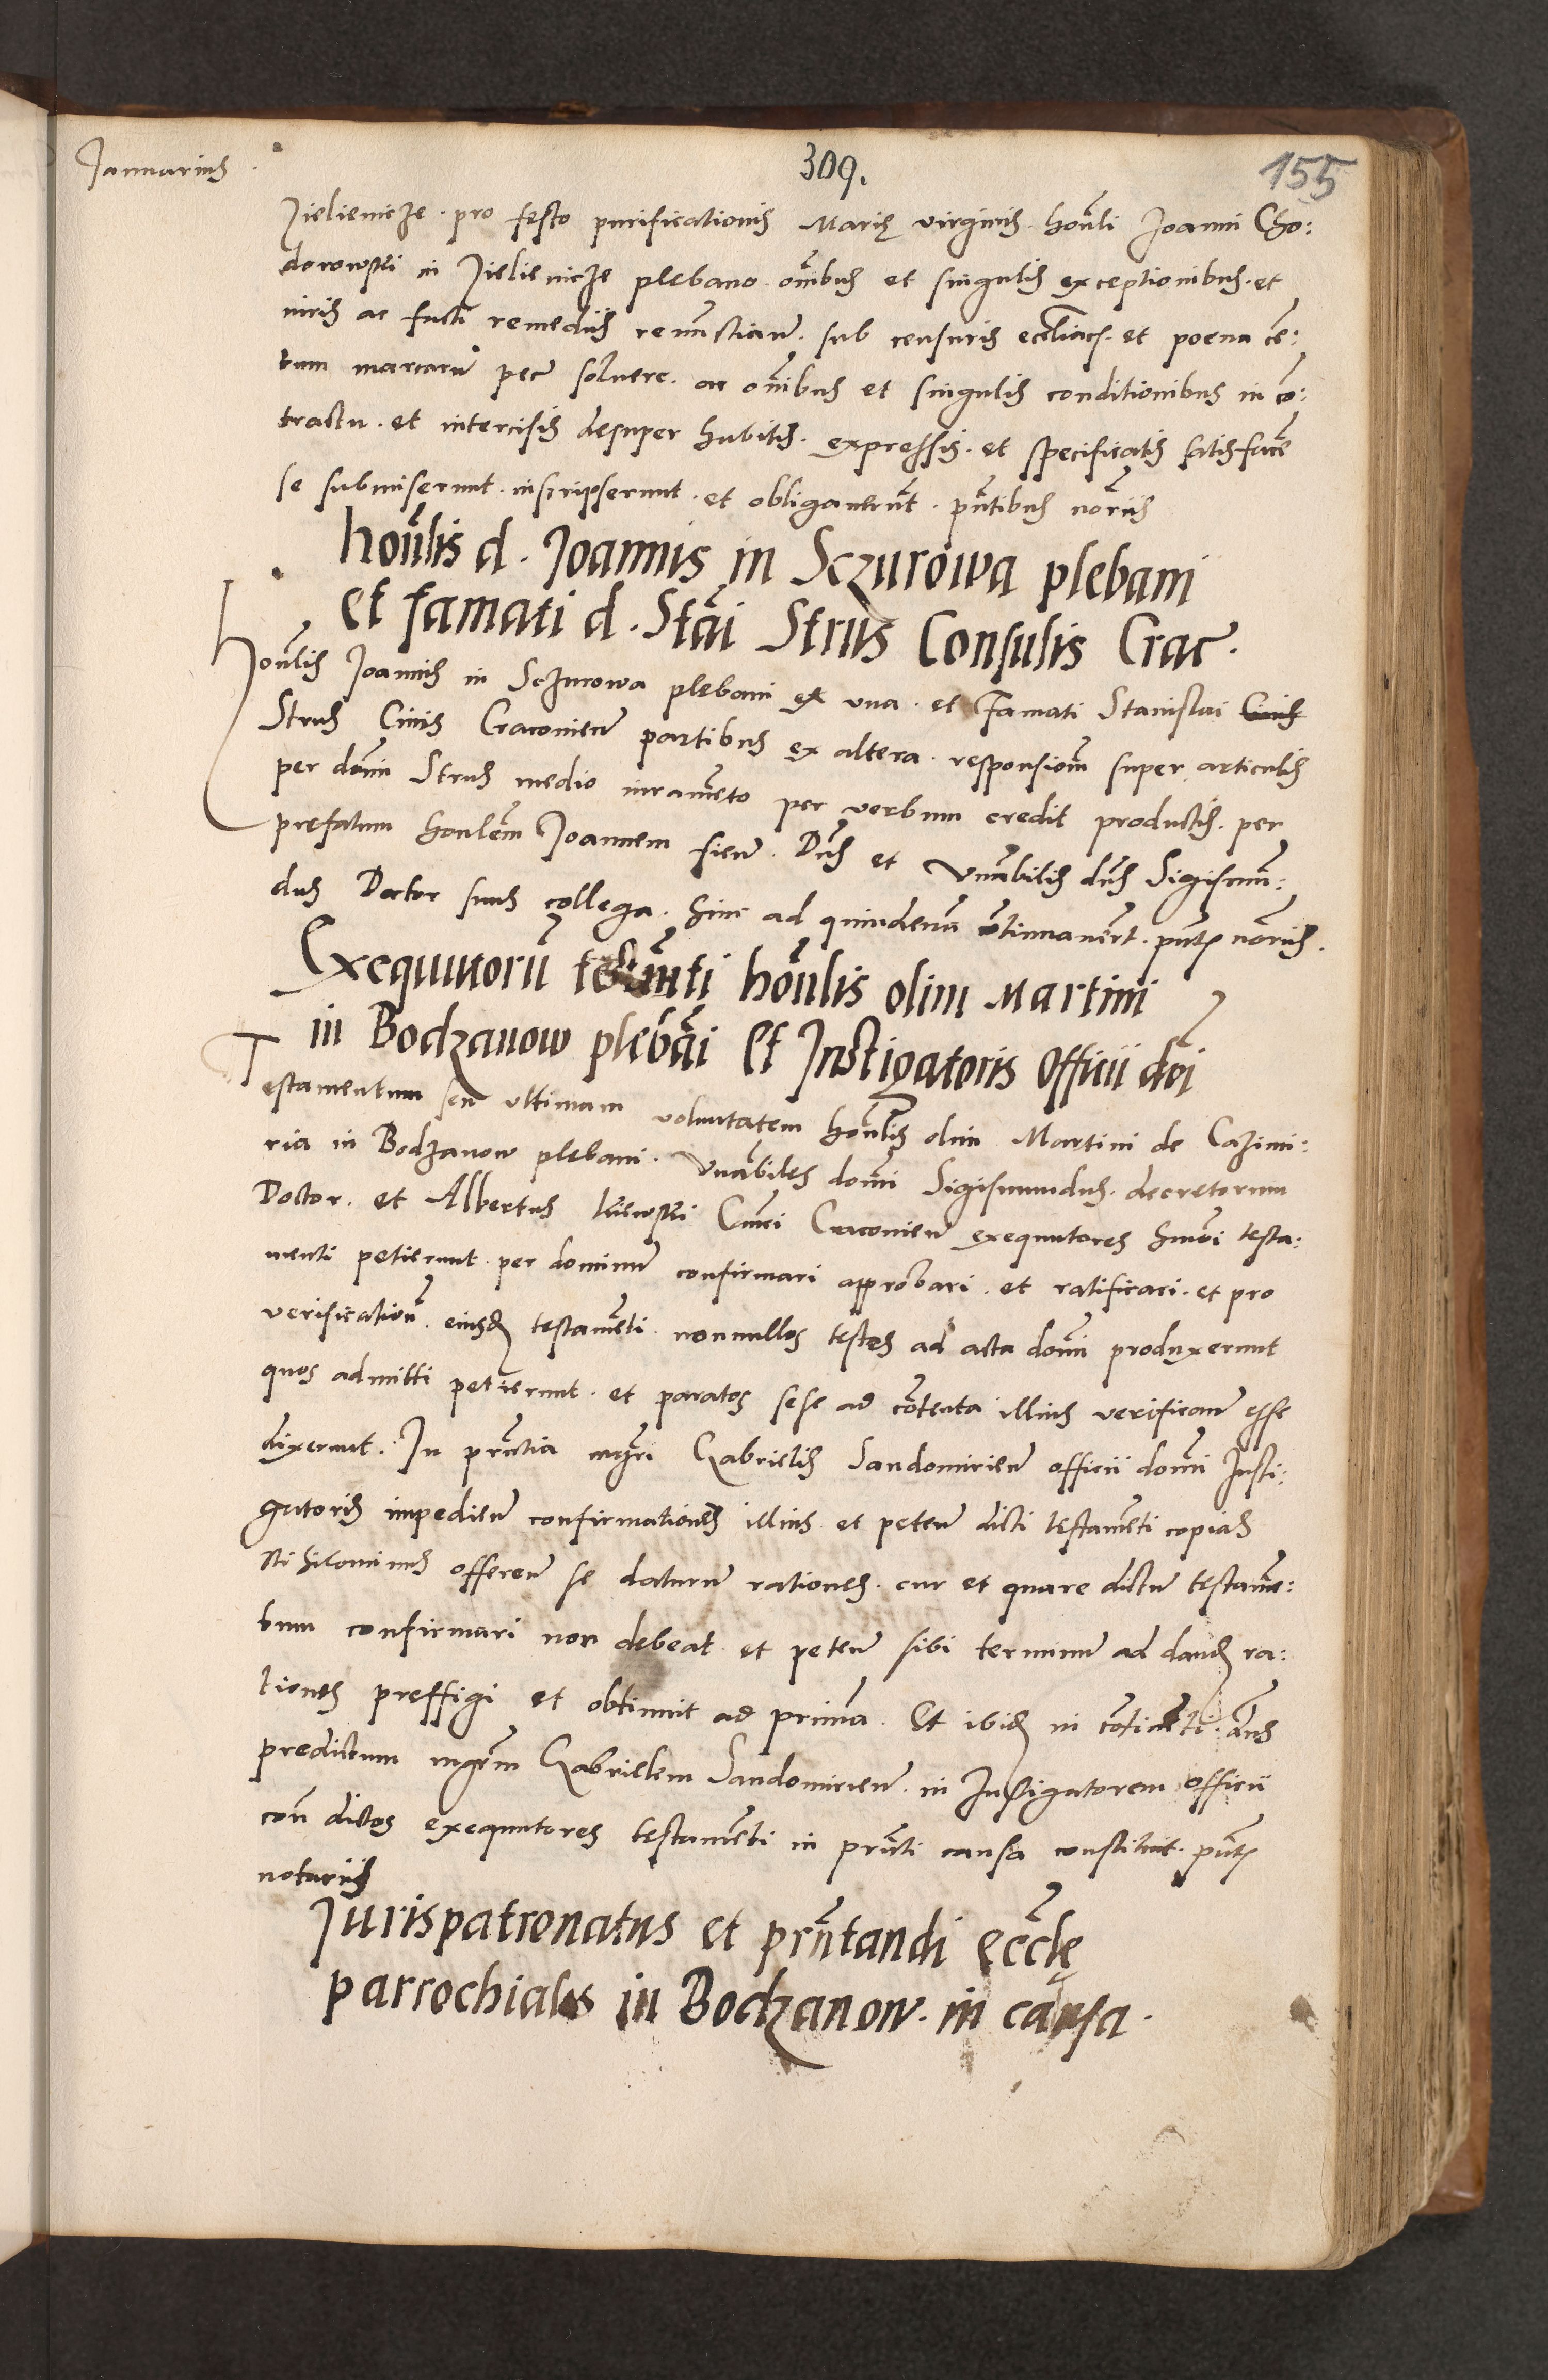 Januarius
309.
155
Zielienicze. pro festo purificationis Marię virginis. hon̄li Joanni Cho:
dorowski in Zielienicze plebano. om̄ibus et singulis exceptionibus. et
iuris ac facti remediis renūctiaῆ. sub censuris eccl̄iacs. et poena cē:
tum marcarū pec̄ soluere. ac om̄ibus et singulis conditionibus in cō:
tractu. et intercisis desuper habitis. expressis. et specificatis satisfacē
se submiserunt. inscripserunt. et obligauerūt. pn̄tibus nōriis
hon̄lis d. Joannis in Sczurowa plebani
et famati d. Stāi Strus Consulis Crac̄.
Hon̄lis Joannis in Sczurowa plebani ex una. et Famati Stanislai
Strus Ciuis Cracoῄeῆ partibus ex altera. responsiom̄ super articulis
per dom̄ Strus medio iuramēto per verbum credit productis. per
prefatum honlem̄ Joannem fieῆ. Dn̄s et Vn̄abilis dn̄s Sigismun:
dus Doctor suus collega. hinc ad quindenā cōtinuauerūt. pn̄t nōriis.
Exequutorū testm̄ti hon̄lis olim Martini
in Bodzanow plebāi Et Instigatoris Officii dn̄i
Testamentum seu ultimam voluntatem hon̄lis olim Martini de Cazimi:
ria in Bodzanow plebani. Vn̄abiles dom̄i Sigismundus. decretorum
Doctor. et Albertus Kiiewski Can̄ci Cracovieῆ exequutores hm̄oi testa:
menti petierunt. per dominū confirmari approbari. et ratificari. et pro
verificationē. eiusd̄ testamēti. nonnullos testes ad acta dom̄i produxerunt
quos admitti petierunt. et paratos sese ad cōtenta illius verificanῆ esse
dixerunt. In prn̄tia mgr̄i Gabrielis Sandomirieῆ officii dom̄i Insti:
gatoris impedieῆ confirmationes illius et peteῆ dicti testamēti copias
Nihilominus offereῆ se daturū rationes. cur et quare dictū testamē:
tum confirmari non debeat. et peteῆ sibi terminū ad dand̄ ra:
tiones preffigi et obtinuit ad primā. Et ibid̄ in cōtinēti. dn̄s
predictum mgrm̄ Gabrielem Sandomirieῆ. in Instigatorem officii
con̄ dictos exequutores testamēti in prn̄ti causa constituit. pn̄t
notariis
Jurispatronatus et prn̄tandi ecclę
parrochialis in Bodzanow. in causa.